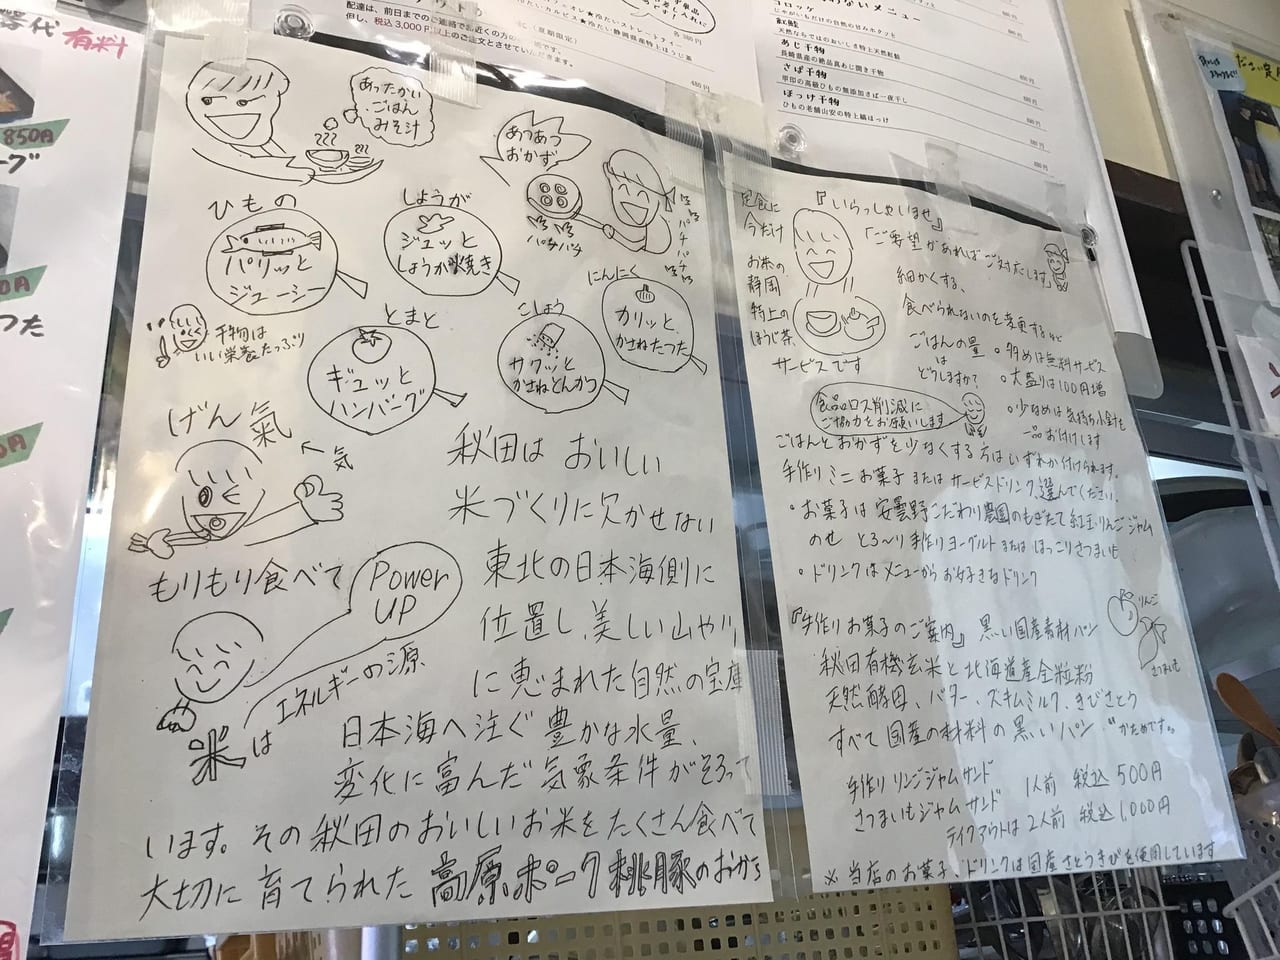 有料
850円
配達は、前日までのご連絡でお近くの方の
但し、税込3,000円以上のご注文とさせていただきます。
(夏期限定)
480円
コロッケ
じゃがいもだけの自然の甘みホクッと
紅鮭
天然ならではのおいしさ特上天然紅鮭
あじ干物
長崎県産の絶品真あじ開き干物
さば干物
ほっけ干物
ひもの老舗山安の特上縞ほっけ
あったかい
ごはん
みそ汁
あつあつ
おかず
パチパチ
パチパチ
ひもの
パリッと
ジューシー
しょうが
ジュッと
しょうが焼き
にんにく
カリッと
かさねたつた
干物は
いい栄養たっぷり
とまと
ギュッと
ハンバーグ
こしょう
サクッと
かさねとんかつ
げん氣
←気
もりもり食べて
Power
UP
米は
エネルギーの源
秋田は おいしい
米づくりに欠かせない
東北の日本海側に
位置し、美しい山や川
に恵まれた自然の宝庫
日本海へ注ぐ豊かな水量、
変化に富んだ気象条件がそろって
います。その秋田のおいしいお米をたくさん食べて
大切に育てられた高原ポーク桃豚のおかず
定食に
今だけ
お茶の
静岡
特上の
ほうじ茶
サービスです
『いらっしゃいませ』
「ご要望があればご対応します」
細かくする、
食べられないのを変更するなど
ごはんの量
は
どうしますか?
・多めは無料サービス
・大盛りは100円増
・少なめは気持ち小金ほど
一品お付けします
食品ロス削減に
ご協力をお願いします
ごはんとおかずを少なくする方はいずれか付けられます。
手作りミニお菓子またはサービスドリンク、選んでください。
・お菓子は安曇野こだわり農園のもぎたて紅玉りんごジャム
のせ とろ〜り手作りヨーグルトまたはほっこりさつまいも
・ドリンクはメニューからお好きなドリンク
りんご
さつまいも
『手作りお菓子のご案内』黒い国産素材パン
秋田有機玄米と北海道産全粒粉
天然酵母、バター、スキムミルク、きびさとう
すべて国産の材料の黒いパン "かためです。
手作りリンゴジャムサンド
さつまいもジャムサンド
1人前 税込500円
テイクアウトは2人前 税込1,000円
※当店のお菓子、ドリンクは国産さとうきびを使用しています